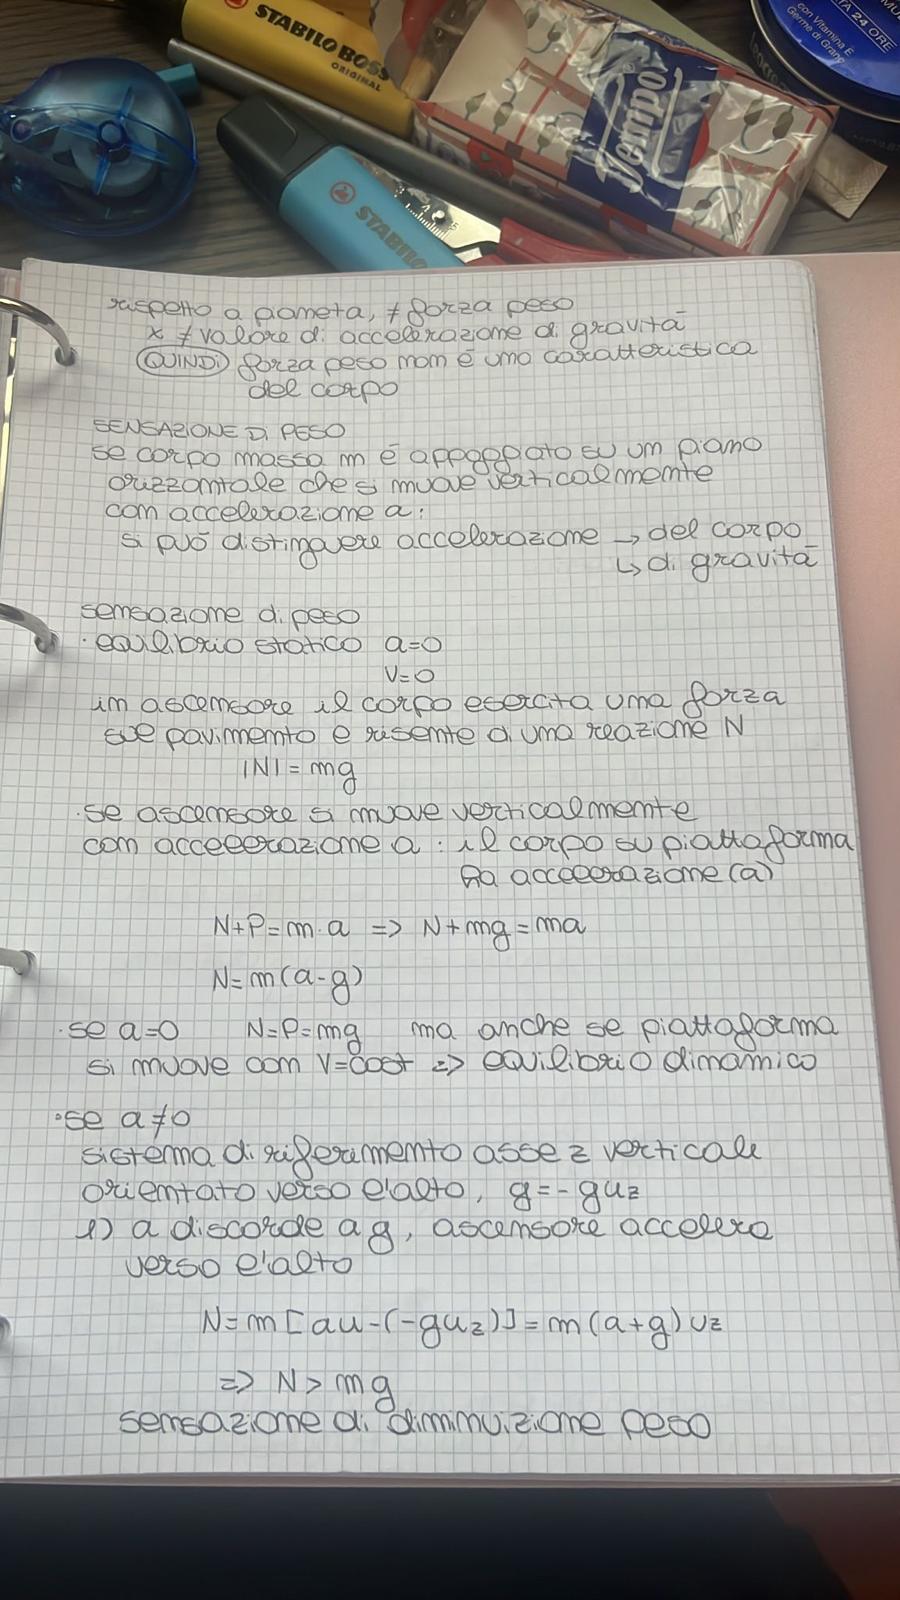 STABILO BOSS
ORIGINAL
Tempo
STABILO
con Vitamina E
24 ORE
rispetto a pianeta, ≠ forza peso
x ≠ valore di accelerazione di gravità
QUINDI forza peso non è una caratteristica
del corpo
SENSAZIONE DI PESO
se corpo massa m è appoggiato su un piano
orizzontale che si muove verticalmente
con accelerazione a:
si può distinguere accelerazione → del corpo
↳ di gravità
sensazione di peso
· equilibrio statico a=0
v=0
in ascensore il corpo esercita una forza
sul pavimento e risente di una reazione N
|N| = mg
· se ascensore si muove verticalmente
con accelerazione a : il corpo su piattaforma
ha accelerazione (a)
N+P=m·a => N+mg=ma
N=m(a-g)
· se a=0 N=P=mg ma anche se piattaforma
si muove con v=cost => equilibrio dinamico
· se a≠0
sistema di riferimento asse z verticale
orientato verso l'alto, g=-guz
1) a discorde a g, ascensore accelera
verso l'alto
N=m[au-(-guz)]=m(a+g)uz
=> N> mg
sensazione di diminuizione peso